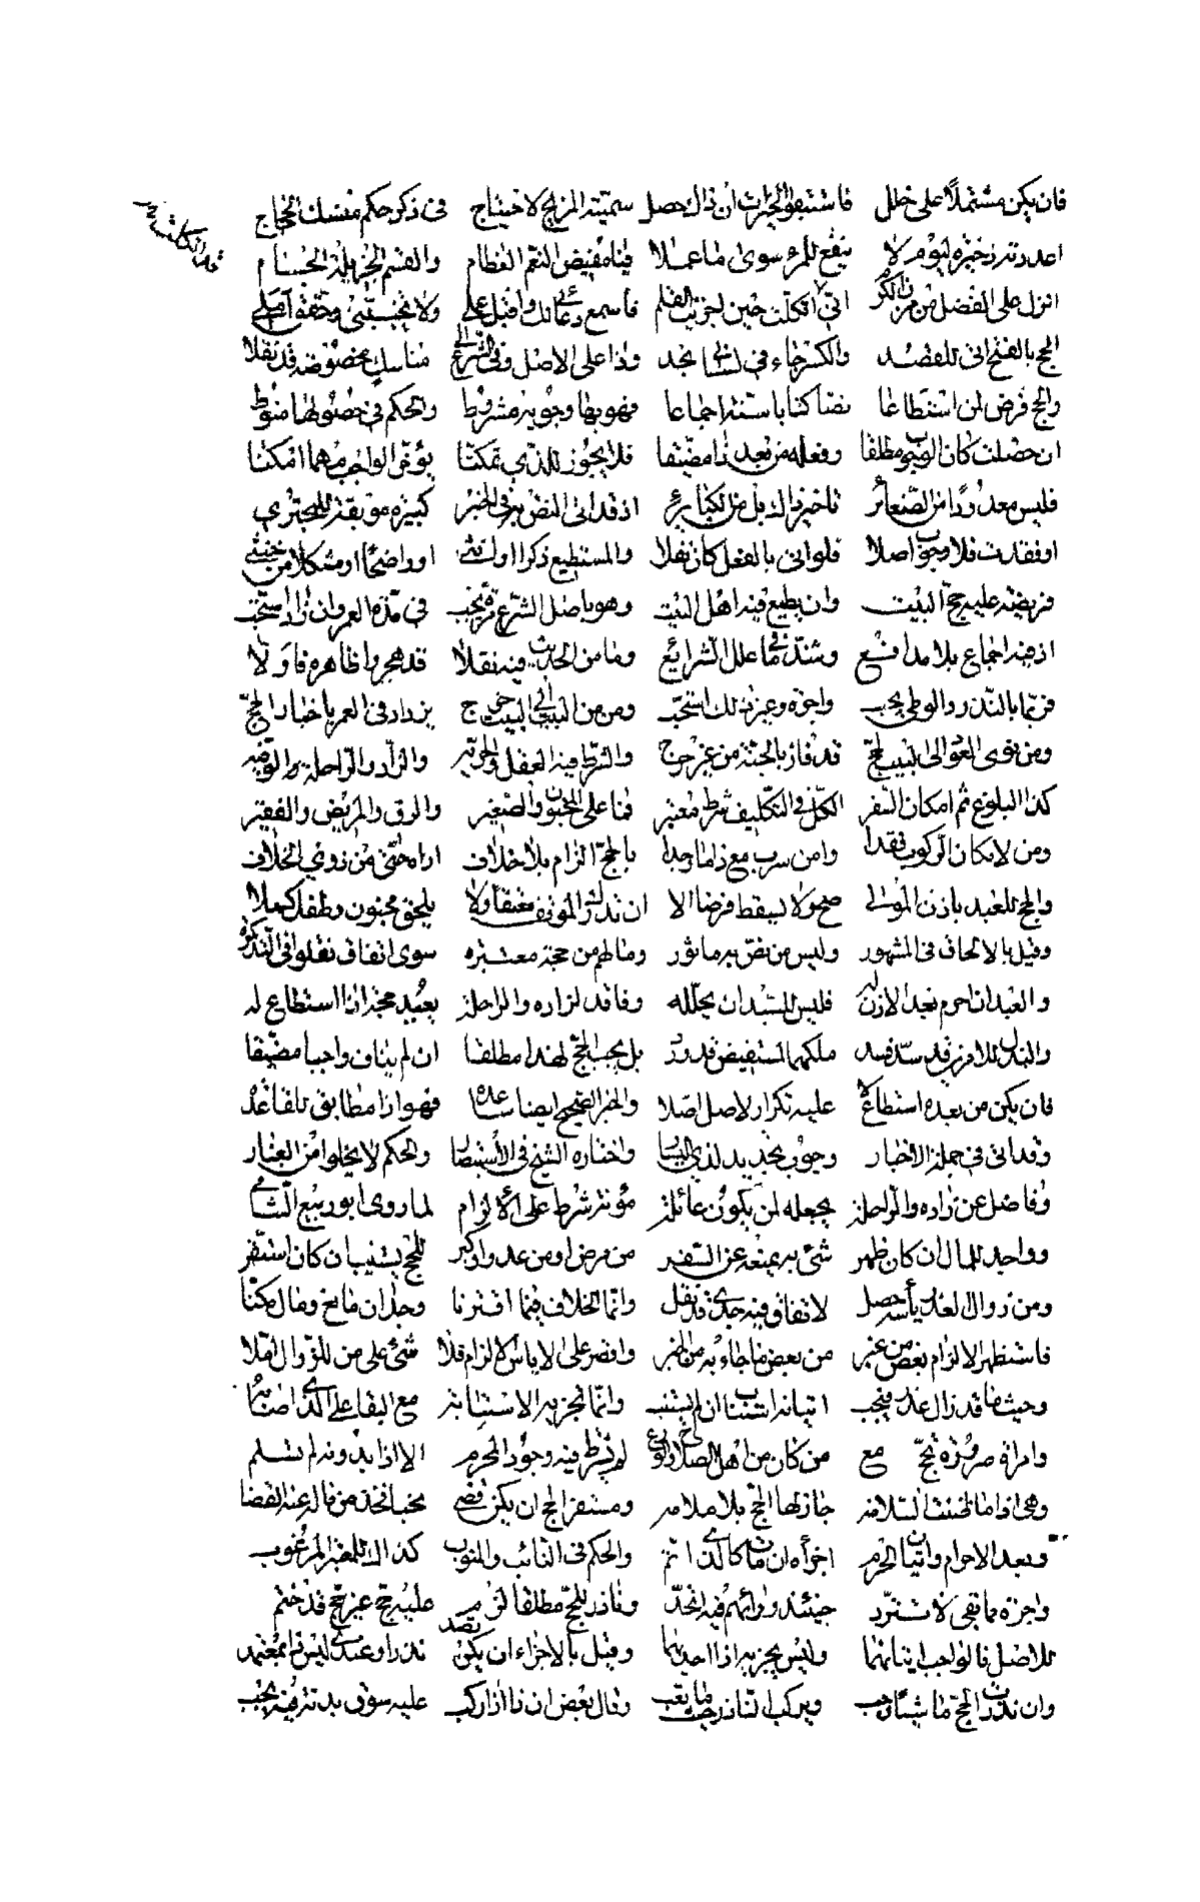 فان يكن مشتملا على خلل فاستبقوا الخيرات ان ذاك حصل سميته المزيج لاختياج فى ذكر حكم منسك الحجاج
اعددته ذخيرة ليوم لا ينفع للمرء سوى ما عملا فيا مفيض النعم العظام والقسم الجزيلة الجسام
انزل على الفضل من مزن الكرم انى اتكلت حين لجزيت القلم فاسمع دعائى لك واقبل عملى ولا تخيبنى وحقق املى
الحج بالفتح اتى للقصد والكسر جاء فى لسان نجد وذا على الاصل وفى الشرع الى مناسك مخصوصة قد نقلا
والحج فرض لمن استطاعا نصا كتابا سنة اجماعا فهو بها وجوبه مشروط والحكم فى حصولها منوط
ان حصلت كان الوجوب مطلقا وفعله من بعد ذا مضيقا فلا يجوز للذى تمكنا يؤخر الواجب مهما امكنا
فليس معدودا من الصغائر تاخير ذا لذ بل من الكبائر اذ قد اتى النص به فى الخبر كبيرة موبقة للمجترى
او فقدت فلا وجوب اصلا فلو اتى بالفعل كان نفلا والمستطيع ذكرا او انثى او واضحا او مشكلا من خنثى
فريضة عليه حج البيت وان يطيع فيه اهل البيت وهو باصل الشرع مرة يجب فى مدة العمر وان زاد استحب
اذ فيه اجماع بلا مدافع وشذ ما فى علل الشرائع وما من الحديث فيه نقلا قد هجروا ظاهره فاولا
فربما بالنذر والوطى يجب واجرة وغير ذلك استحب ومن من البيت الى البيت حج يزداد فى العمر باخبار الحج
ومن نوى العود الى البيت لحج قد فاز بالجنة من غير حرج والشرط فيه العقل والحرية والزاد والراحلة
كذا البلوغ ثم امكان السفر الكل فى التكليف شرط معتبر فما على المجنون والصغير والرق والمريض والفقير
ومن لامكان الركوب فقدا وامن سرب مع ذا ما وجدا بالحج الزام بلا خلاف اراه حتى من ذوى الخلاف
والحج للعبد باذن المولى صح ولا يسقط فرضا الا ان ندرك الموقف معتقا ولا يلحق مجنون وطفل كملا
وقيل بالالحاق فى المشهور وليس من نص به ماثور وما لهم من حجة معتبره سوى اتفاق نقلوا فى التذكره
والعبد ان احرم بعد الاذن له فليس للسيد ان يحلله وفاقد لزاده والراحله بعيد مجزٍ اذا استطاع له
والبذل للامرين قد سد فسد ملكهما المستفيض قد ورد بل يجب الحج لهذا مطلقا ان لم يناف واجبا مضيقا
فان يكن من بعده استطاع لا عليه تكرار لاصل اصلا والخبر الصحيح ايضا ساعده فهو اذا مطابق للقاعده
وقد اتى فى جملة الاخبار وجوب تجديد لذى اليسار واختاره الشيخ فى الاستبصار والحكم لا يخلوا من العثار
وفاضل عن زاده والراحله يجعله لمن يكون عائله مؤنته شرط على الالزام لما روى ابو ربيع الشامى
وواجد للمال ان كان ظهر شئ به يمنعه عن السفر من مرض او من عدو او كبر للحج يستنيب ان كان استقر
ومن زوال العذر يأسه حصل لاتفاق فيه جدى قد نقل وانما الخلاف فيما افترقا وجدان مانع ومال مكنا
فاستظهر الالزام بعض من غبر من بعض ما جاء به من الخبر واقصر على الاياس كالالزام فلا شئ على من للزوال املا
وحيث ما قد زال عذر فيجب اتيانه استناب ان لم يستنب وانما تجزيه الاستنابة مع البقا على الذى اصابه
وامراة صرورة تحج مع من كان من اهل الصلاح والورع لم يشترط فيه وجود المحرم الا اذا بدونه لم تسلم
وهى اذا ما ظنت السلامه جاز لها الحج بلا ملامه ومستقر الحج ان يكن قضى نحبا فخذ من ماله عنه القضا
وبعد الاحرام واتيان الحرم اجزأه ان مات كالذى اتم والحكم فى النائب والمنوب كذاك للخبر المرغوب
واجرة ما بقى لا تسترد حينئذ ورائهم فيه اتحد وناذر للحج مطلقا لزم عليه حج غير حج قد ختم
للاصل فالواجب اتيانهما وليس يجزيه اذا احديهما وقيل بالاجزاء ان يكن قصد نذرا وعندى ليس ذا بمعتمد
وان نذرت الحج ماشيا وجب ويركب الناذر حيث ما تعب وقال بعض ان ذا اذا ركب عليه سوق بدنة فيه يجب